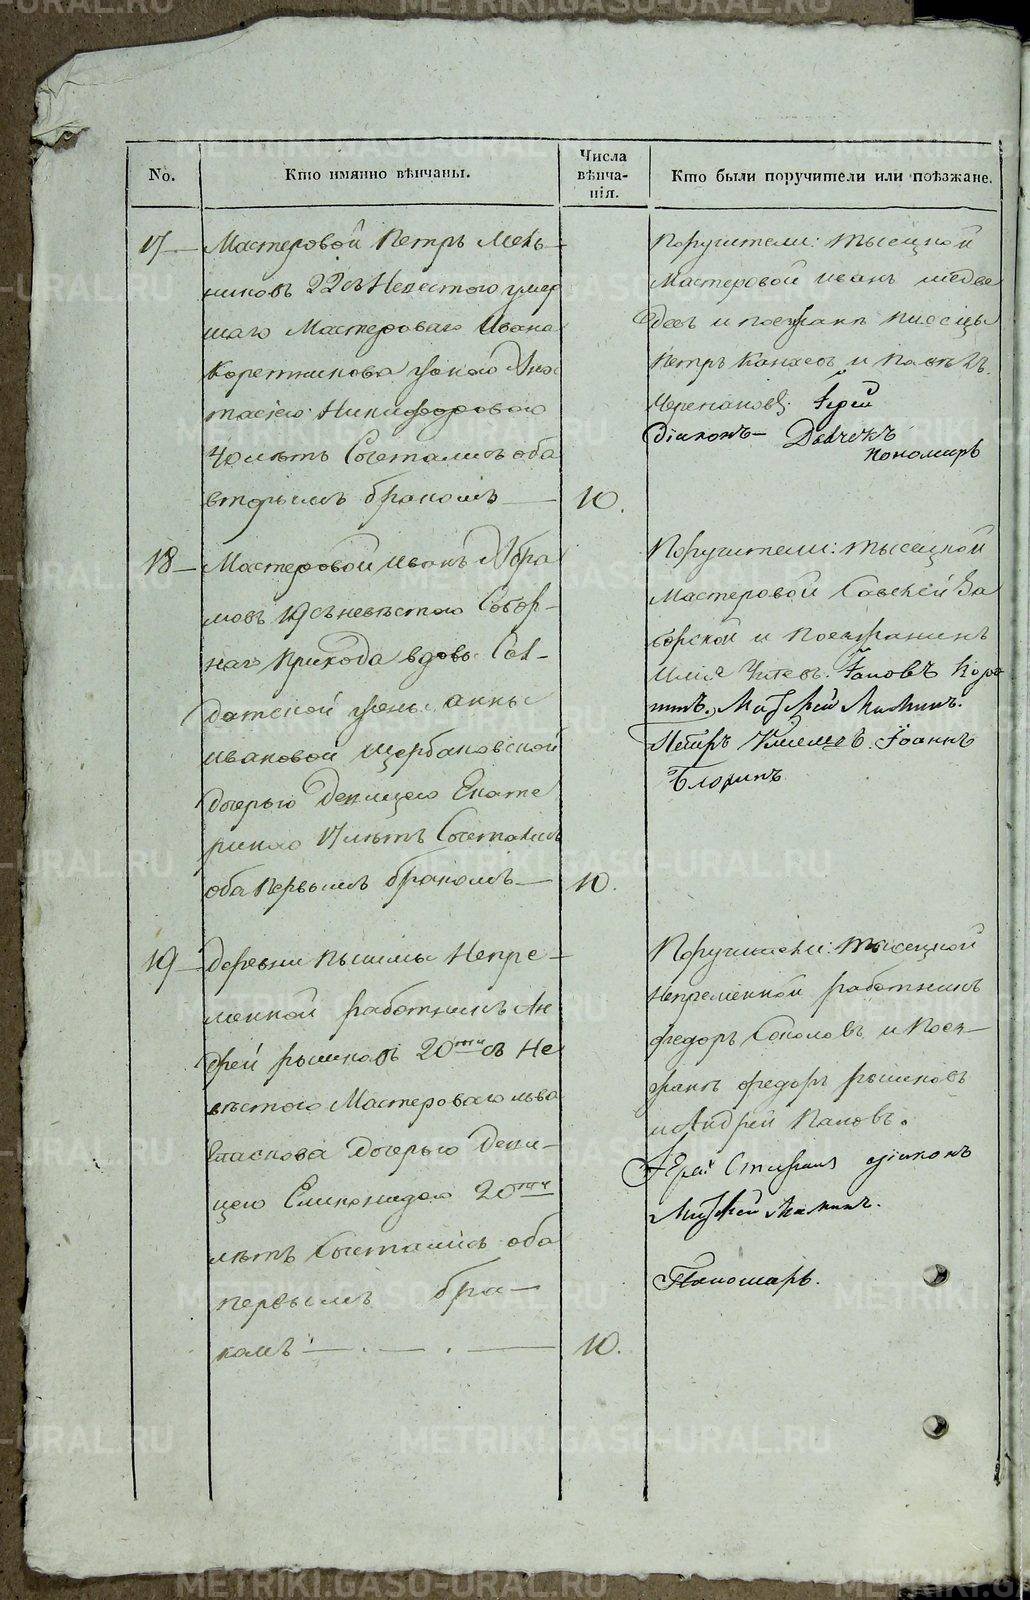 No.
Кто имянно вѣнчаны.
Числа
вѣнча-
нія.
Кто были поручители или поѣзжане.
17 Мастеровой Петръ Мель-
никовъ 22 съ Невестою умер
шаго Мастероваго Ивана
Коретникова женою Ана
тасіею Никифоровою
40 лѣтъ Сочетались оба
вторымъ бракомъ 10.
Поручители: тысецкой
Мастеровой иванъ медве
девъ и поезжанъ
Петръ и Павелъ
Черепановъ Іерей
Діаконъ Дьячекъ
пономарь
18 Мастеровой Иванъ Абра
мовъ 19 съ невѣстою Собор-
наго прихода вдовы Сол-
датской жены анны
ивановой Щербаковской
дочерью девицею Екате
риною 17 лѣтъ Сочетались
оба первымъ бракомъ 10.
Поручители: тысецкой
Мастеровой Савелей За
борской и поезжанинъ
Илія Іаковъ
Матфей Маминъ.
Петръ Іоаннъ
19 деревни пышмы Непре-
менной работникъ Ан
дрей 20ти съ Не
вѣстою Мастероваго льва
Спаскова дочерью деви-
цею 20ти
лѣтъ Сочетались оба
первымъ бра-
комъ 10.
Поручители: тысецкой
Непременной работникъ
федоръ Соколовъ и поез-
жанъ федоръ
и Андрей Паповъ.
Іерей Стефанъ діаконъ
Матфей Маминъ.
Панomарь.
METRIKI.GASO-URAL.RU